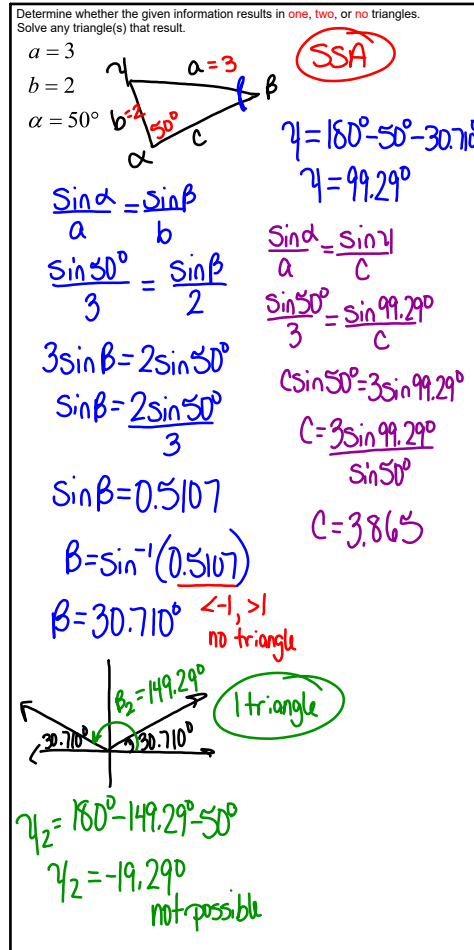 Determine whether the given information results in one, two, or no triangles.
Solve any triangle(s) that result.
a = 3
b = 2
α = 50°
γ
a = 3
β
b = 2
50°
c
α
SSA
γ = 180° - 50° - 30.710°
γ = 99.29°
sinα/a = sinβ/b
sin50°/3 = sinβ/2
3sinβ = 2sin50°
sinβ = 2sin50°/3
sinβ = 0.5107
β = sin⁻¹(0.5107)
<-1, >1
no triangle
β = 30.710°
sinα/a = sinγ/c
sin50°/3 = sin99.29°/c
csin50° = 3sin99.29°
c = 3sin99.29°/sin50°
c = 3.865
β₂ = 149.29°
30.710°
30.710°
1 triangle
γ₂ = 180° - 149.29° - 50°
γ₂ = -19.29°
not possible